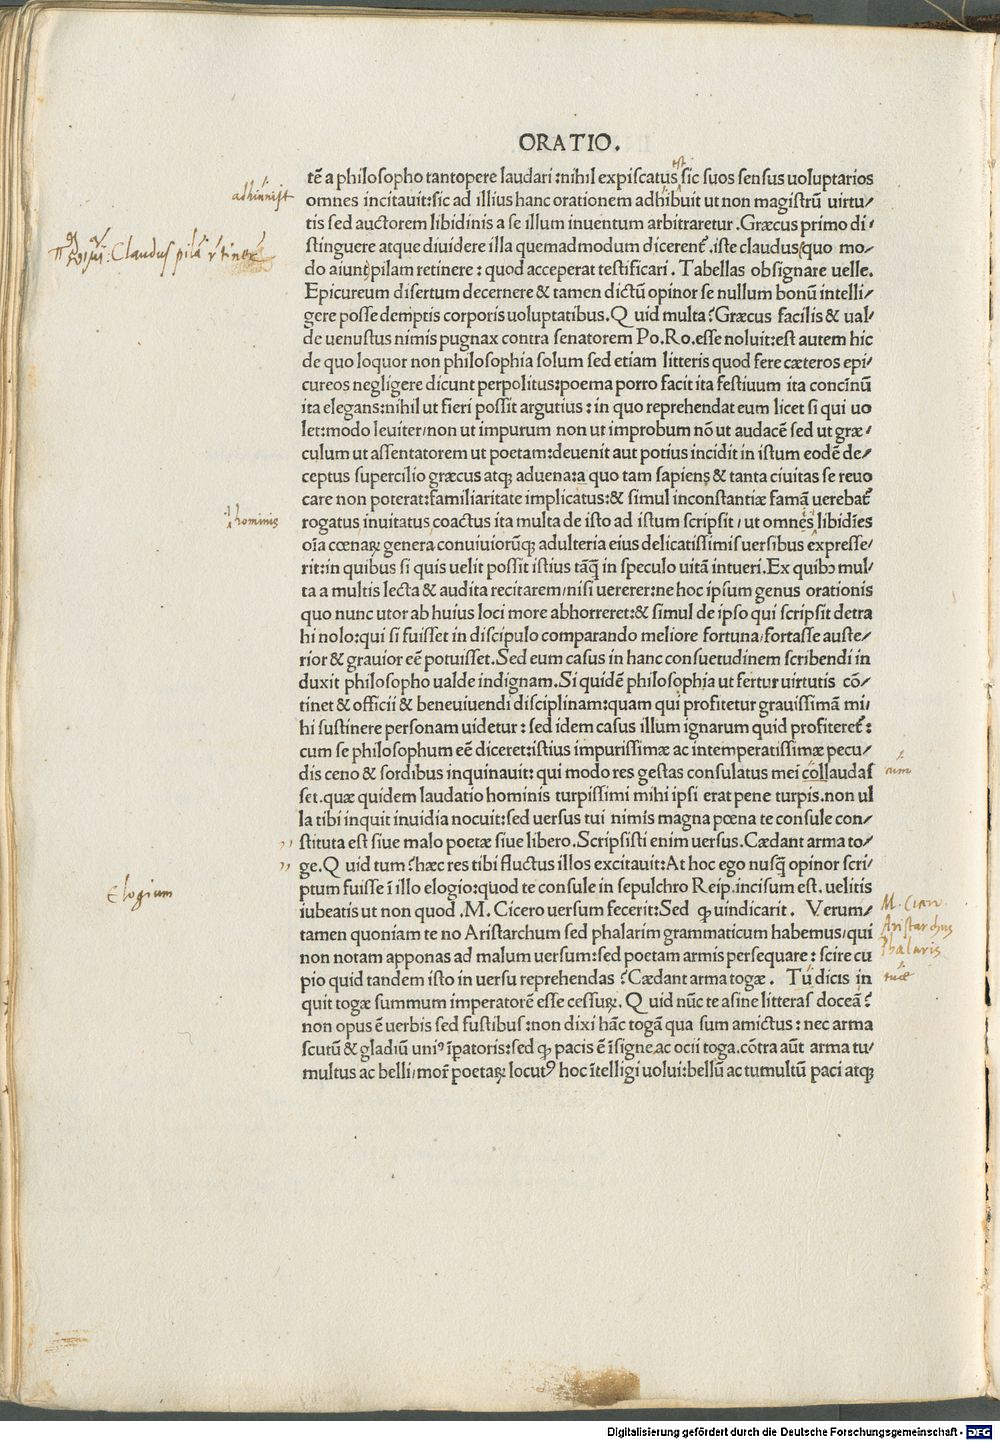 ORATIO.
tē a philosopho tantopere laudari :nihil expiscatus sic suos sensus uoluptarios
est
adhinnijt
omnes incitauit:sic ad illius hanc orationem adhibuit ut non magistrū uirtu/
tis sed auctorem libidinis a se illum inuentum arbitraretur .Græcus primo di/
stinguere atque diuidere illa quemadmodum dicerent᷑ .iste claudus/quo mo/
: Claudus pilā rtinere
do aiunt pilam retinere : quod acceperat testificari . Tabellas obsignare uelle.
Epicureum disertum decernere & tamen dictū opinor se nullum bonū intelli/
gere posse demptis corporis uoluptatibus.Q uid multa?Græcus facilis & ual/
de uenustus nimis pugnax contra senatorem Po.Ro.esse noluit:est autem hic
de quo loquor non philosophia solum sed etiam litteris quod fere cæteros epi/
cureos negligere dicunt perpolitus:poema porro facit ita festiuum ita concīnū
ita elegans:nihil ut fieri possit argutius : in quo reprehendat eum licet si qui uo
let:modo leuiter/non ut impurum non ut improbum nō ut audacē sed ut græ/
culum ut assentatorem ut poetam:deuenit aut potius incidit in istum eodē de/
ceptus supercilio græcus atqꝫ aduena:a quo tam sapiens & tanta ciuitas se reuo
care non poterat:familiaritate implicatus:& simul inconstantiæ famā uerebat᷑
hominis
rogatus inuitatus coactus ita multa de isto ad istum scripsit / ut omnes libidīes
oīa cœnaꝝ genera conuiuiorūqꝫ adulteria eius delicatissimis uersibus expresse/
rit:in quibus si quis uelit possit istius tāq̄ in speculo uitā intueri.Ex quibꝫ mul/
ta a multis lecta & audita recitarem/nisi uererer:ne hoc ipsum genus orationis
quo nunc utor ab huius loci more abhorreret:& simul de ipso qui scripsit detra
hi nolo:qui si fuisset in discipulo comparando meliore fortuna/fortasse auste/
rior & grauior eē potuisset.Sed eum casus in hanc consuetudinem scribendi in
duxit philosopho ualde indignam.Si quidē philosophia ut fertur uirtutis cō/
tinet & officii & beneuiuendi disciplinam:quam qui profitetur grauissimā mi/
hi sustinere personam uidetur : sed idem casus illum ignarum quid profiteret᷑ :
cum se philosophum eē diceret:istius impurissimæ ac intemperatissimæ pecu/
dis ceno & sordibus inquinauit: qui modo res gestas consulatus mei collaudas
cum
set.quæ quidem laudatio hominis turpissimi mihi ipsi erat pene turpis.non ul
la tibi inquit inuidia nocuit:sed uersus tui nimis magna pœna te consule con/
stituta est siue malo poetæ siue libero.Scripsisti enim uersus.Cædant arma to/
ge.Q uid tum?hæc res tibi fluctus illos excitauit:At hoc ego nusq̄ opinor scri/
Elogium
ptum fuisse ī illo elogio:quod te consule in sepulchro Reip.incisum est. uelitis
iubeatis ut non quod .M. Cicero uersum fecerit:Sed ꝙ uindicarit . Verum/
M. Cicero.
tamen quoniam te no Aristarchum sed phalarim grammaticum habemus/qui
Aristarchus
non notam apponas ad malum uersum:sed poetam armis persequare : scire cu
Phalaris
pio quid tandem isto in uersu reprehendas ?Cædant arma togæ . Tu dicis in
quit togæ summum imperatorē esse cessuꝝ. Q uid nūc te asine litteras doceā?
non opus ē uerbis sed fustibus:non dixi hāc togā qua sum amictus : nec arma
scutū & gladiū uniꝰ īpatoris:sed ꝙ pacis ē īsigne ac ocii toga.cōtra aūt arma tu/
multus ac belli/morē poetaꝝ locutꝰ hoc ītelligi uolui:bellū ac tumultū paci atqꝫ
Digitalisierung gefördert durch die Deutsche Forschungsgemeinschaft - DFG